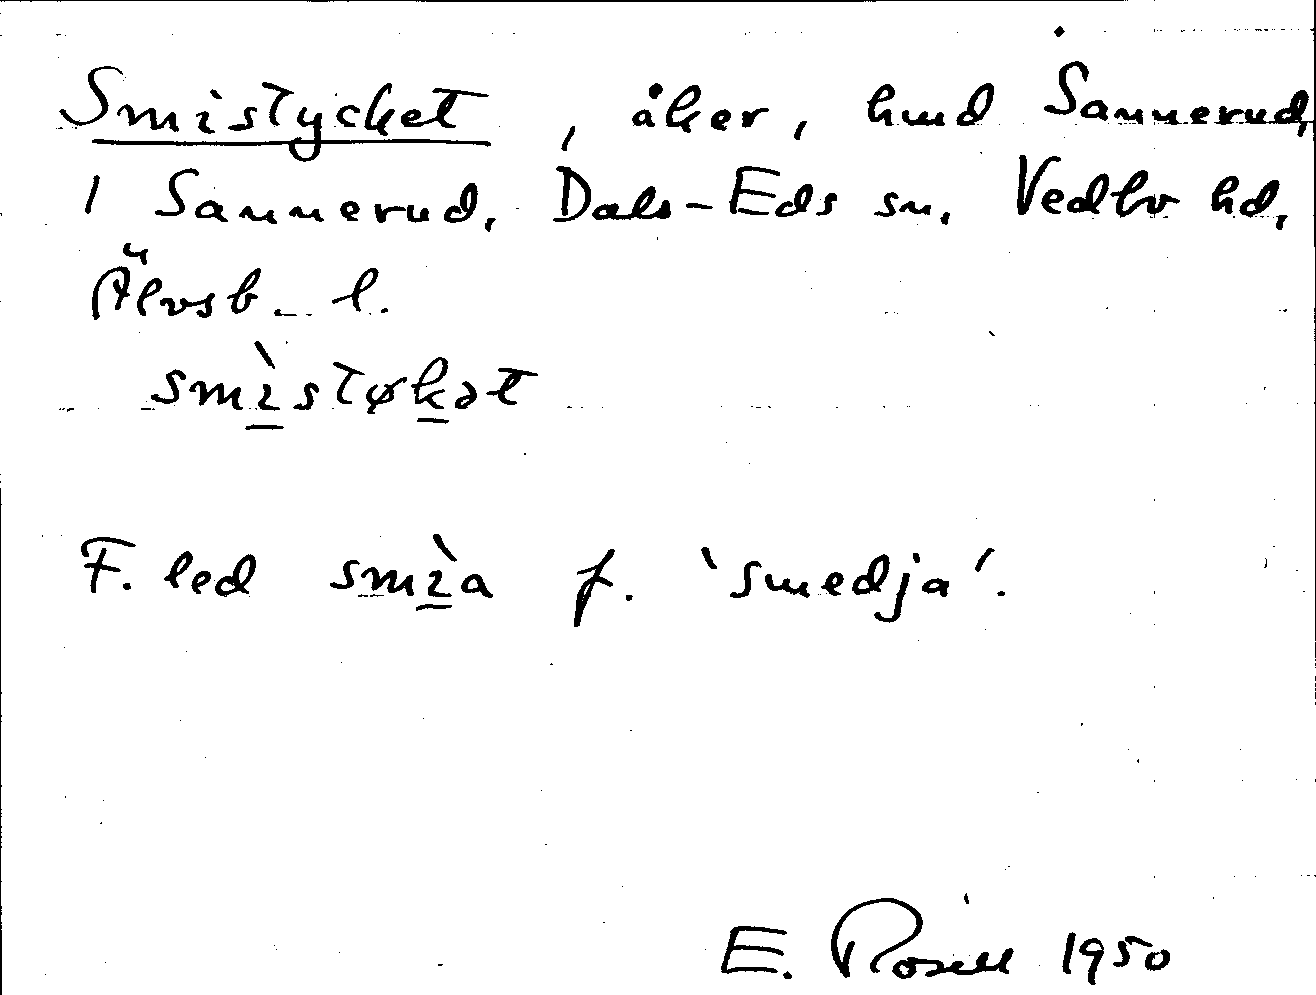 Smistycket, åker, hmd Sannerud,
1 Sannerud, Dals-Eds sn, Vedbo hd,
Älvsb. l.
smìstøkət
F. led smìa f. 'smedja'.
E. Rosell 1950